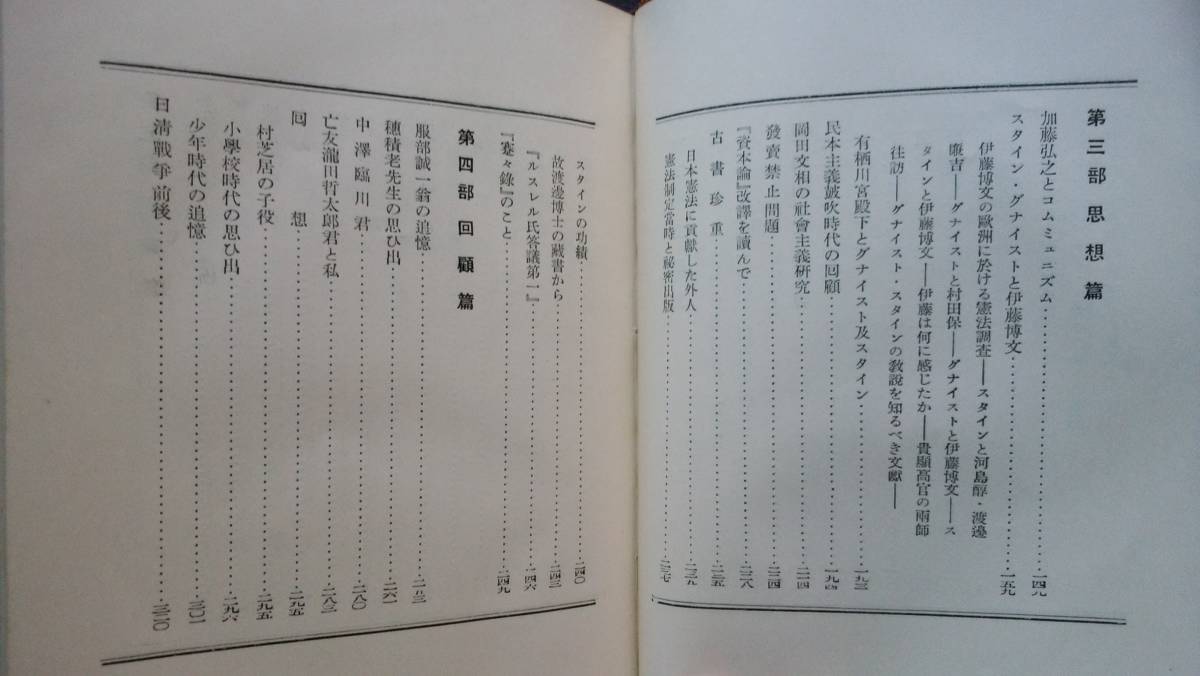 第三部 思想篇
加藤弘之とコムミュニズム…………一四九
スタイン・グナイストと伊藤博文…………一五九
伊藤博文の歐洲に於ける憲法調査――スタインと河島醇・渡邊
廉吉――グナイストと村田保――グナイストと伊藤博文――ス
タインと伊藤博文――伊藤は何に感じたか――貴顯高官の兩師
往訪――グナイスト・スタインの敎說を知るべき文獻――
有栖川宮殿下とグナイスト及スタイン…………一九三
民本主義鼓吹時代の回顧…………一九四
岡田文相の社會主義硏究…………二一四
發賣禁止問題…………二二四
『資本論』改譯を讀んで…………二二八
古書珍重…………二三五
日本憲法に貢獻した外人…………二三九
憲法制定當時と祕密出版…………二三七
スタインの功績…………二四〇
故渡邊博士の藏書から…………二四三
『ルスレル氏答議第一』…………二四六
『蹇々錄』のこと…………二四九
第四部 回顧篇
服部誠一翁の追憶…………
穗積老先生の思ひ出…………二六一
中澤臨川君…………二八〇
亡友瀧田哲太郎君と私…………二八三
回想…………二九五
村芝居の子役…………二九五
小學校時代の思ひ出…………二九六
少年時代の追憶…………三〇一
日淸戰爭前後…………三二〇